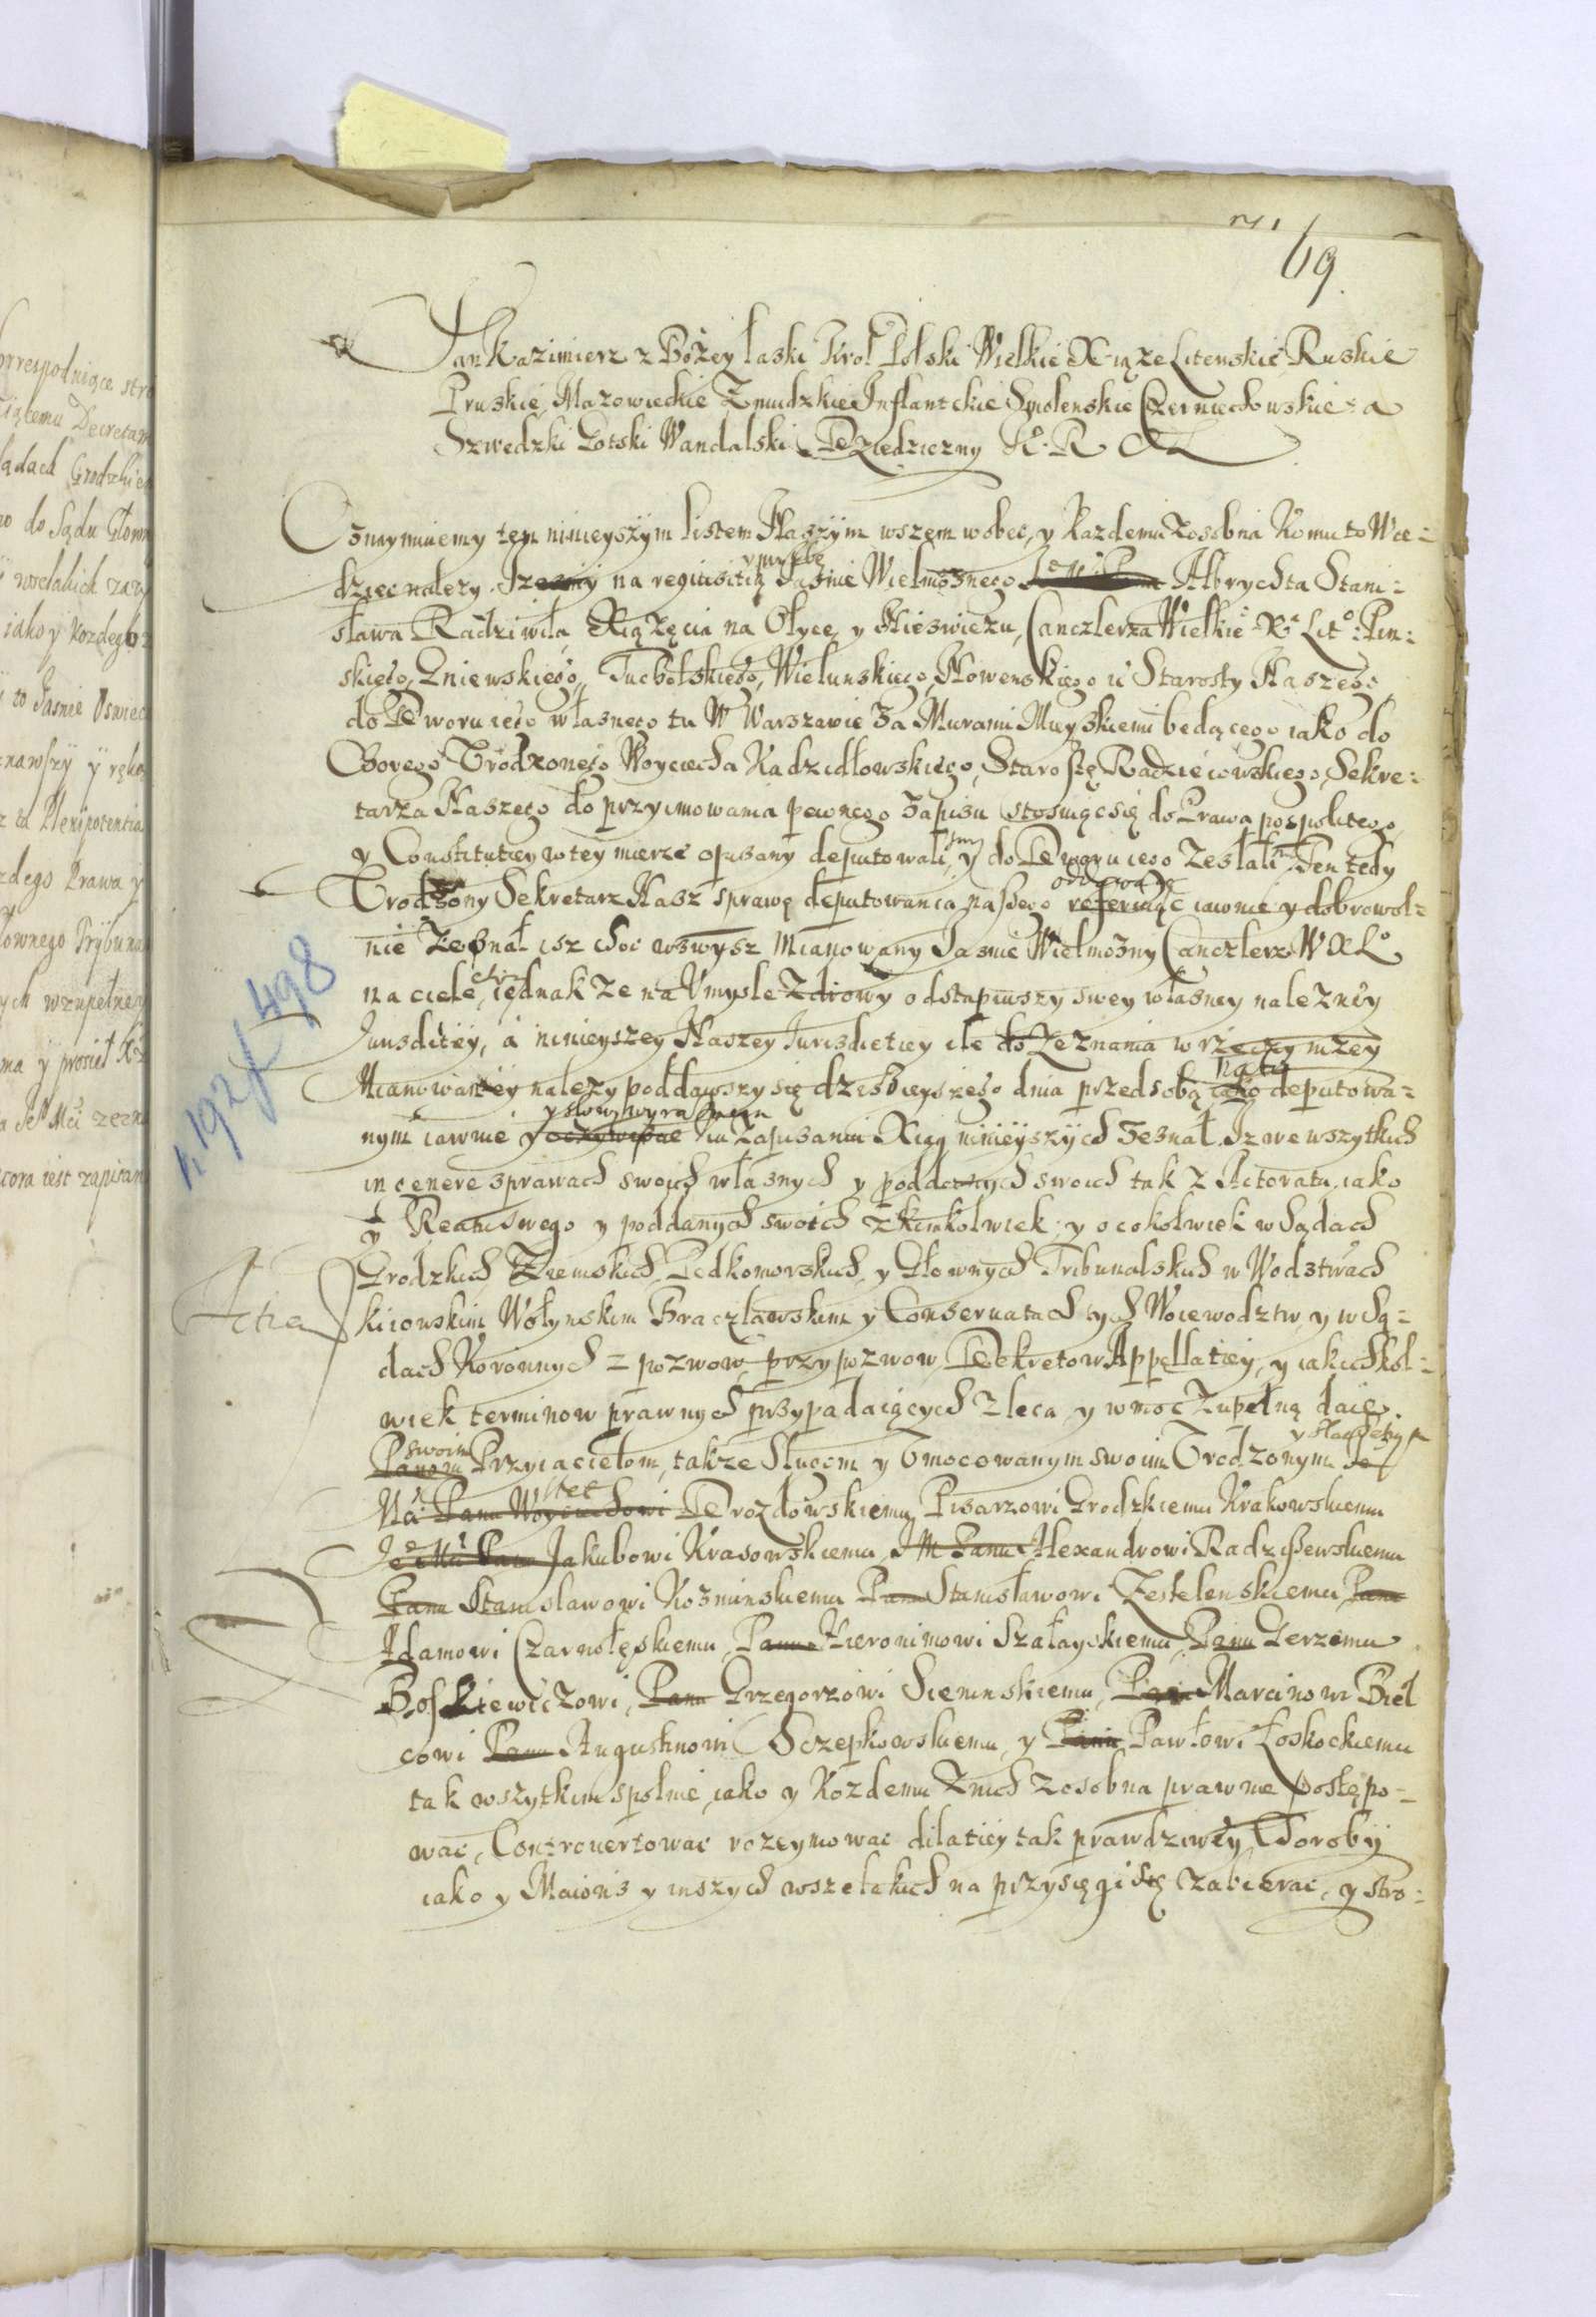 69
Jan Kazimierz z Bożey łaski Krol Polski Wielkie Xiąże Litewskie, Ruskie
Pruskie, Mazowieckie Zmudzkie Inflantckie Smolenskie Czerniechowskie: a
Szwedzki Gotski Wandalski Dziedziczny K. R
Oznaymuiemy tem ninieyszym listem Naszym wszem wobec, y Kazdemu zosobna Komu to Wie-
dziec nalezy. Iz na requisitią y prosbę Jasnie Wielmoznego Albrychta Stani-
sława Radziwiła, Xiązęcia na Ołyce, y Nieswiezu, Canclerza Wielkie: X: Lit: Pin-
skiego, Gniewskiego, Tucholskiego, Wielunskiego, Kowenskiego Starosty Naszego
do Dworu iego własnego tu W Warszawie za Murami Mieyskiemi będącego iako do
Chorego Urodzonego Woyciecha Radzidłowskiego, Starostę Radzieiowskiego, Sekre-
tarza Naszego do przyimowania pewnego zapisu stosuiąc się do Prawa pospolitego
y Constitutiey wtey mierze opisany deputowali smy y do Dworu iego zesłali. Ten tedy
Urodzony Sekretarz Nasz sprawę deputowania naszego oddawaiąc referuiąc iawnie y dobrowol-
nie zeznał isz choc wzwysz mianowany Jasnie Wielmozny Canclerz W X L
na ciele chory iednak ze na Umysle zdrowy odstąpiwszy swey własney nalezney
Jurisditiey, á ninieyszey Naszey Jurisdictiey ile do Zeznania w rzeczy nizey
Mianowaney nalezy poddawszy się dzisieyszego dnia przed sobą iako na to deputowa-
nym iawnie y oczywiscie y słowy wyraznemi ku Zapisaniu Xiąg ninieyszych zeznał. Iz we wszytkich
in genere sprawach swoich własnych y poddanych swoich tak z Actoratu, iako
y Reatu swego y poddanych swoich zkimkolwiek y o cokolwiek w Sądach
Grodzkich Ziemskich, Podkomorskich, y Głownych Tribunalskich w Wodztwach
Actia
kiiowskim Wołynskim Bracławskim y Conseruatach tych Woiewodztw, y w Są-
dach Koronnych z pozwow, przypozwow, Dekretow Appellatiey, y iakichkol-
wiek terminow prawnych przypadaiących zleca y w moc zupełną daie.
Panom swoim Przyiaciełom, takze Sługom y Umocowanym swoim Urodzonym y Slachetnym Je
Mci Panu Woyciechowi stet Drozdowskiemu Pisarzowi Grodzkiemu Krakowskiemu
Jeo Mci Panu Jakubowi Krasowskiemu, J M Panu Alexandrowi Radziszewskiemu
Panu Stanisławowi Kozminskiemu Panu Stanisławowi Zestelenskiemu Panu
Adamowi Czarnołęskiemu, Panu Hieronimowi Szałayskiemu, Panu Jerzemu
Bossiewiczowi, Panu Grzegorzowi Sieninskiemu, Panu Marcinowi Biel
cowi Panu Augustinowi Sczepkowskiemu, y Panu Pawłowi Łoskockiemu
tak wszytkim społnie, iako y Kozdemu znich zosobna prawnie postępo-
wac, Controuertowac rozeymowac dilatiey tak prawdziwey Choroby
iako y Maioris y inszych wszelakich na przysięgi się zabierac, y stro-
k. 192 / 498